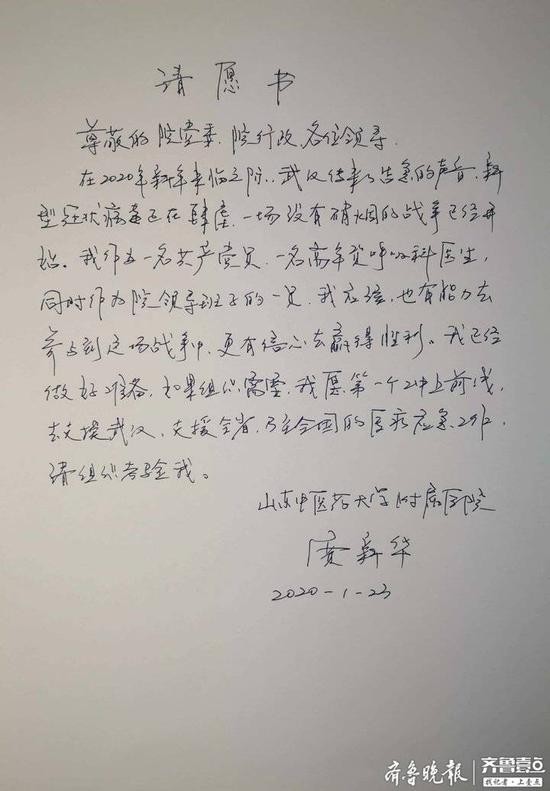 请愿书
尊敬的院党委、院行政、各位领导:
在2020年新年来临之际,武汉传来了告急的声音,新
型冠状病毒正在肆虐,一场没有硝烟的战争已经开
始。我作为一名共产党员,一名高年资呼吸科医生,
同时作为院领导班子的一员,我应该,也有能力去
参与到这场战争中,更有信心去赢得胜利。我已经
做好准备,如果组织需要,我愿第一个冲上前线,
去支援武汉,支援全省,乃至全国的医疗应急工作,
请组织考验我。
山东中医药大学附属医院
贾新华
2020-1-23
齐鲁晚报
齐鲁壹点
找记者·上壹点